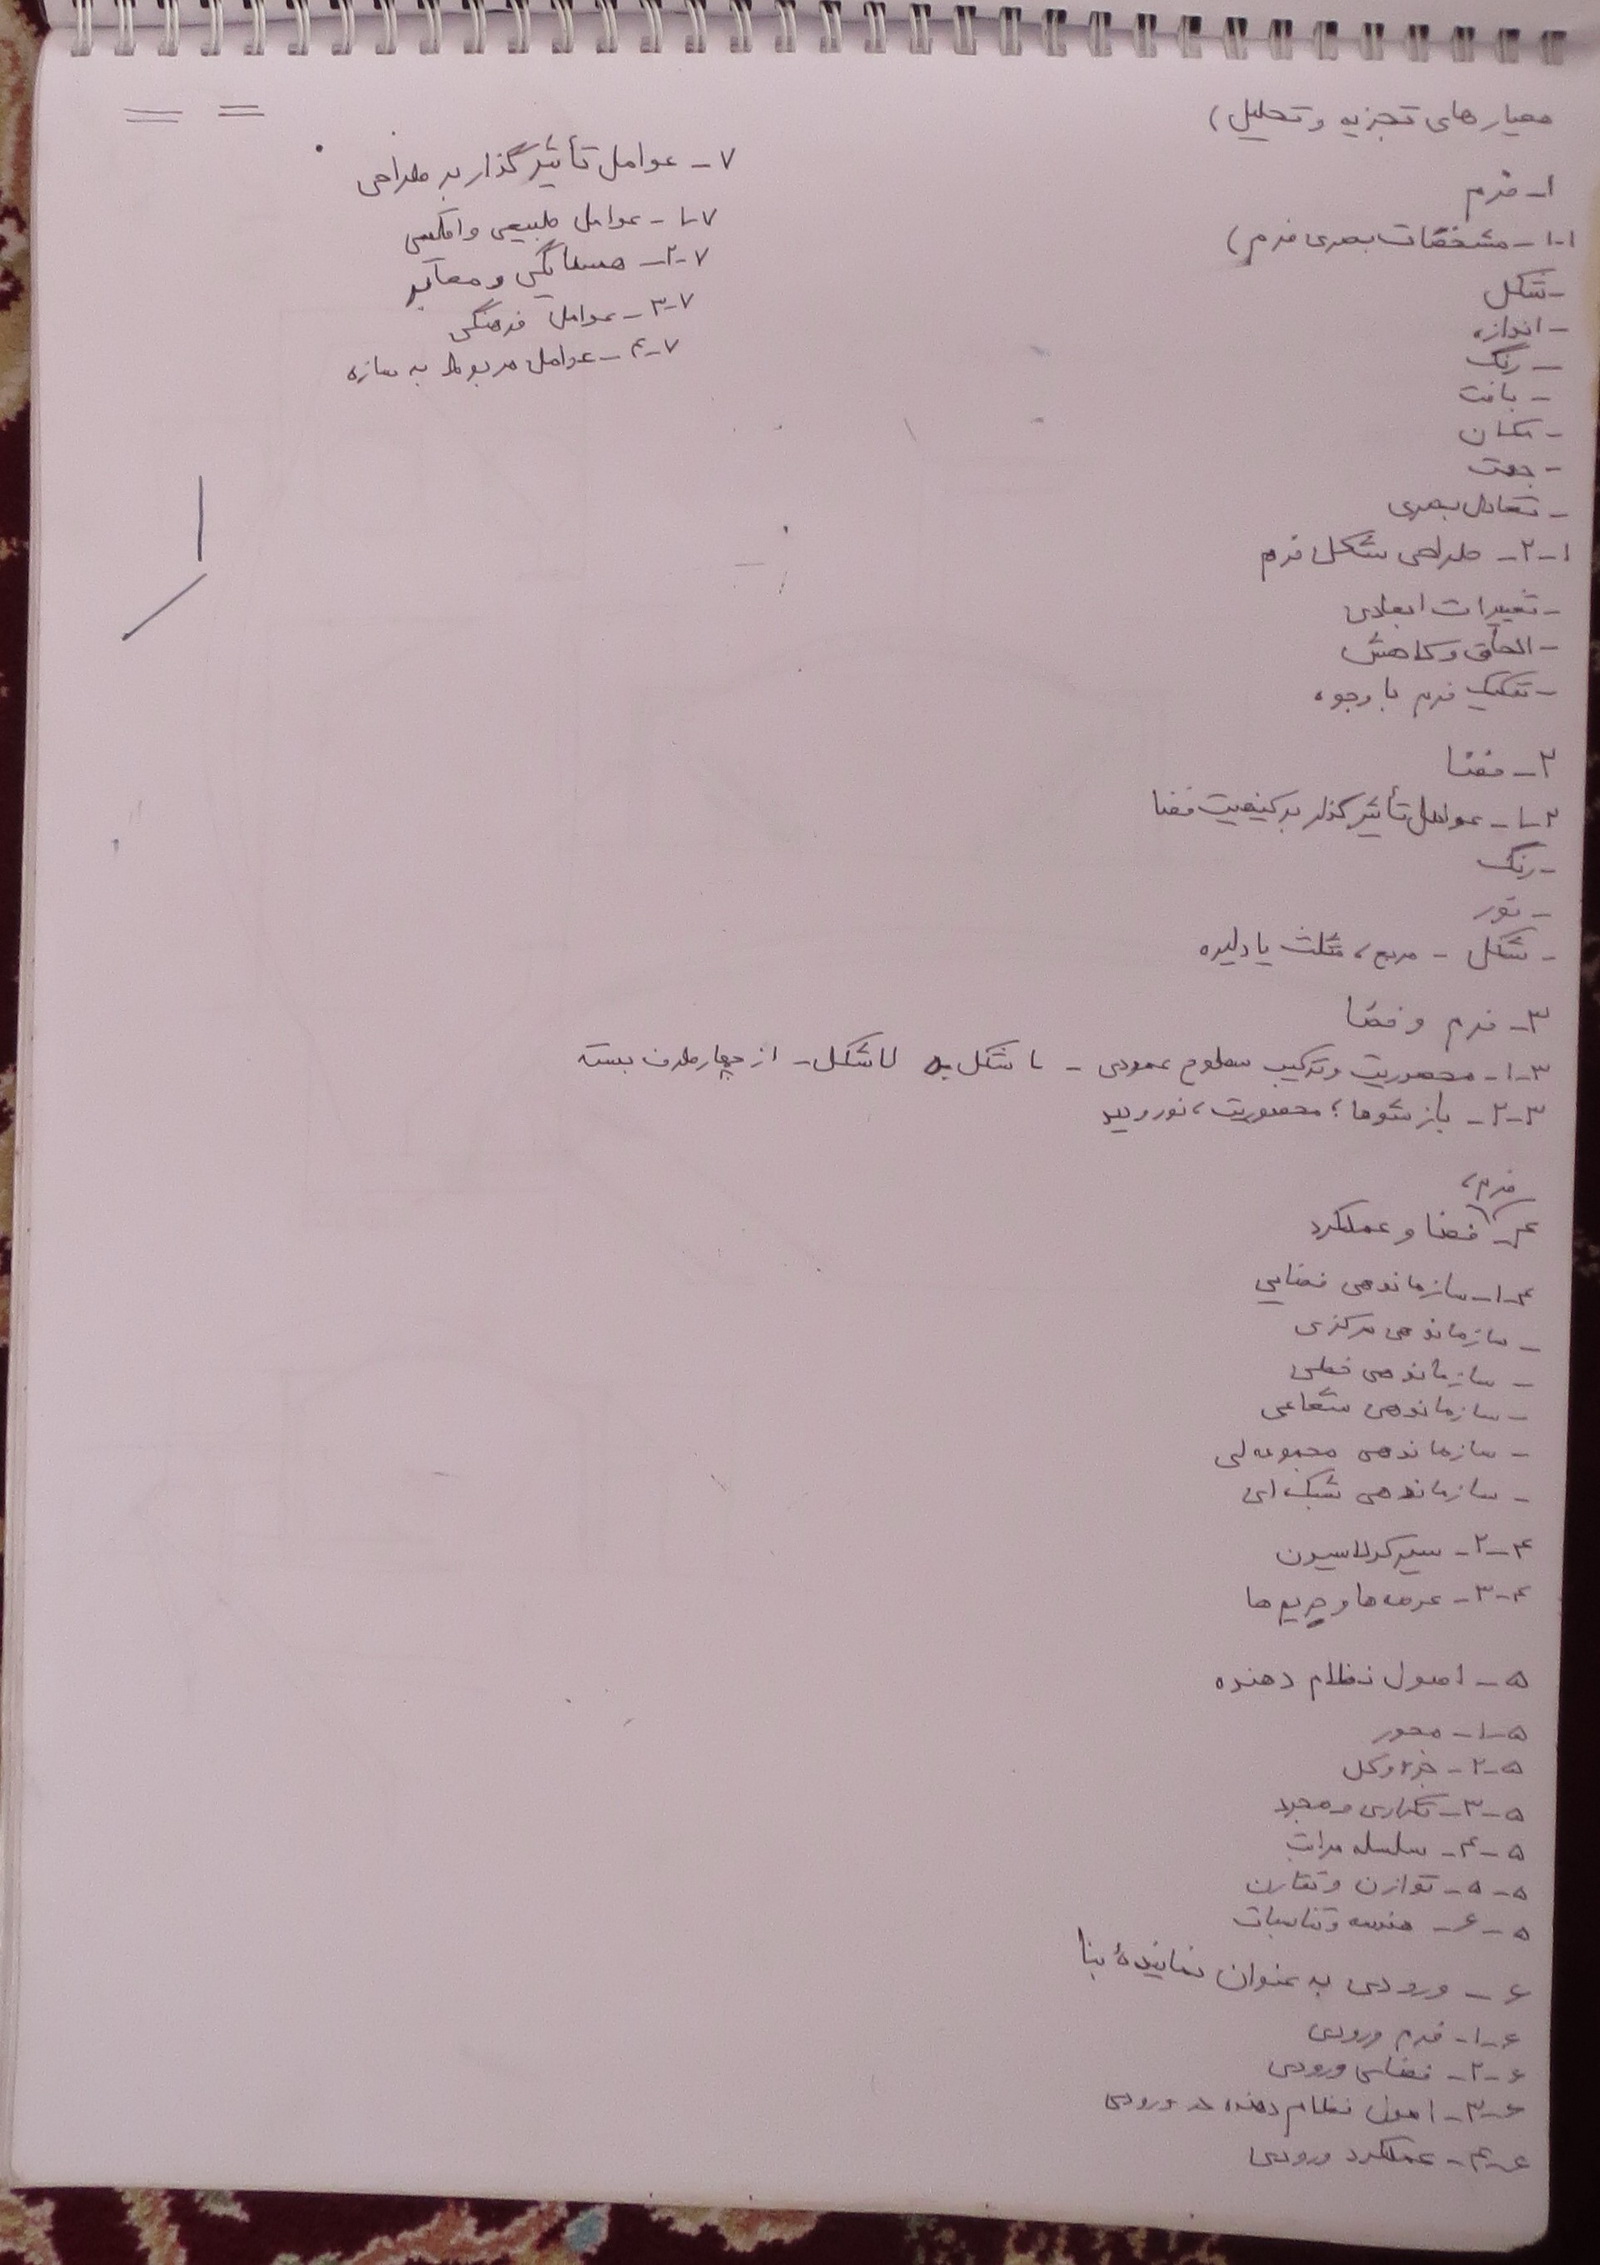 معیارهای تجزیه و تحلیل)
۱- فرم
۱-۱- مشخصات بصری فرم)
- شکل
- اندازه
- رنگ
- بافت
- مکان
- جهت
- تعادل بصری
۱-۲- طراحی شکل فرم
- تغییرات ابعادی
- الحاق و کاهش
- تفکیک فرم با وجوه
۲- فضا
۲-۱- عوامل تأثیرگذار بر کیفیت فضا
- رنگ
- نور
- شکل - مربع، مثلث یا دایره
۳- فرم و فضا
۳-۱- محصوریت و ترکیب سطوح عمودی - L شکل - U شکل - از چهار طرف بسته
۳-۲- بازشوها؛ محصوریت، نور و دید
۴- فرم، فضا و عملکرد
۴-۱- سازماندهی فضایی
- سازماندهی مرکزی
- سازماندهی خطی
- سازماندهی شعاعی
- سازماندهی مجموعه ای
- سازماندهی شبکه ای
۴-۲- سیرکولاسیون
۴-۳- عرصه ها و حریم ها
۵- اصول نظام دهنده
۵-۱- محور
۵-۲- جزء و کل
۵-۳- تکراری و مجرد
۵-۴- سلسله مراتب
۵-۵- توازن و تقارن
۵-۶- هندسه و تناسبات
۶- ورودی به عنوان نمایندهٔ بنا
۶-۱- فرم ورودی
۶-۲- فضای ورودی
۶-۳- اصول نظام دهنده در ورودی
۶-۴- عملکرد ورودی
۷- عوامل تأثیرگذار بر طراحی
۷-۱- عوامل طبیعی و اقلیمی
۷-۲- همسایگی و معابر
۷-۳- عوامل فرهنگی
۷-۴- عوامل مربوط به سازه